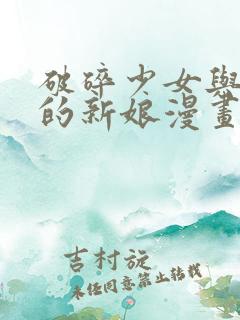 破碎少女與
的新娘漫畫
吉村旋
未经同意禁止转载